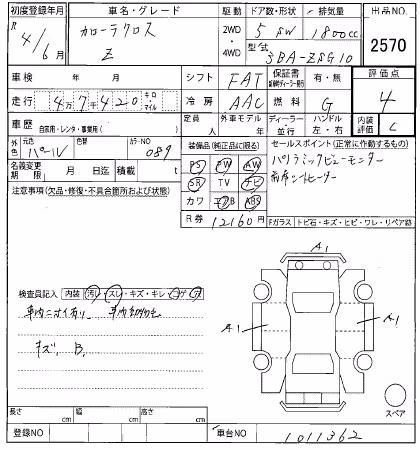 初度登録年月
R 4/6月
車名・グレード
カローラクロス
Z
駆動
2WD
4WD
ドア数・形状
5 SW
排気量
1800cc
型式
3BA-ZSG10
出品NO.
2570
車検 年 月
シフト FAT
保証書
有・無
評価点
4
走行 4万7千420 キロ・マイル
冷房 AAC
燃料 G
車歴 自家用・レンタ・事業用( )
定員 人
外車モデル 年
ディーラー 並行
ハンドル 左・右
内装評価 C
外色 元色 パール 色替 カラーNO 089
装備品(純正品に限る)
セールスポイント(正常に動作するもの)
パノラミックビューモニター
前席シートヒーター
名義変更期限 月 日迄
積載 t
PS PW AW
SR TV ナビ
カワ エアB ABS
R券 12160円
注意事項(欠品・修復・不具合箇所および状態)
Fガラス トビ石・キズ・ヒビ・ワレ・リペア跡
A1
A1
A1
検査員記入 内装 汚レ・スレ・キズ・キレ
車内ニオイ有り
キズ, B,
スペア
長さ cm
幅 cm
高さ cm
登録NO
車台NO 1011362